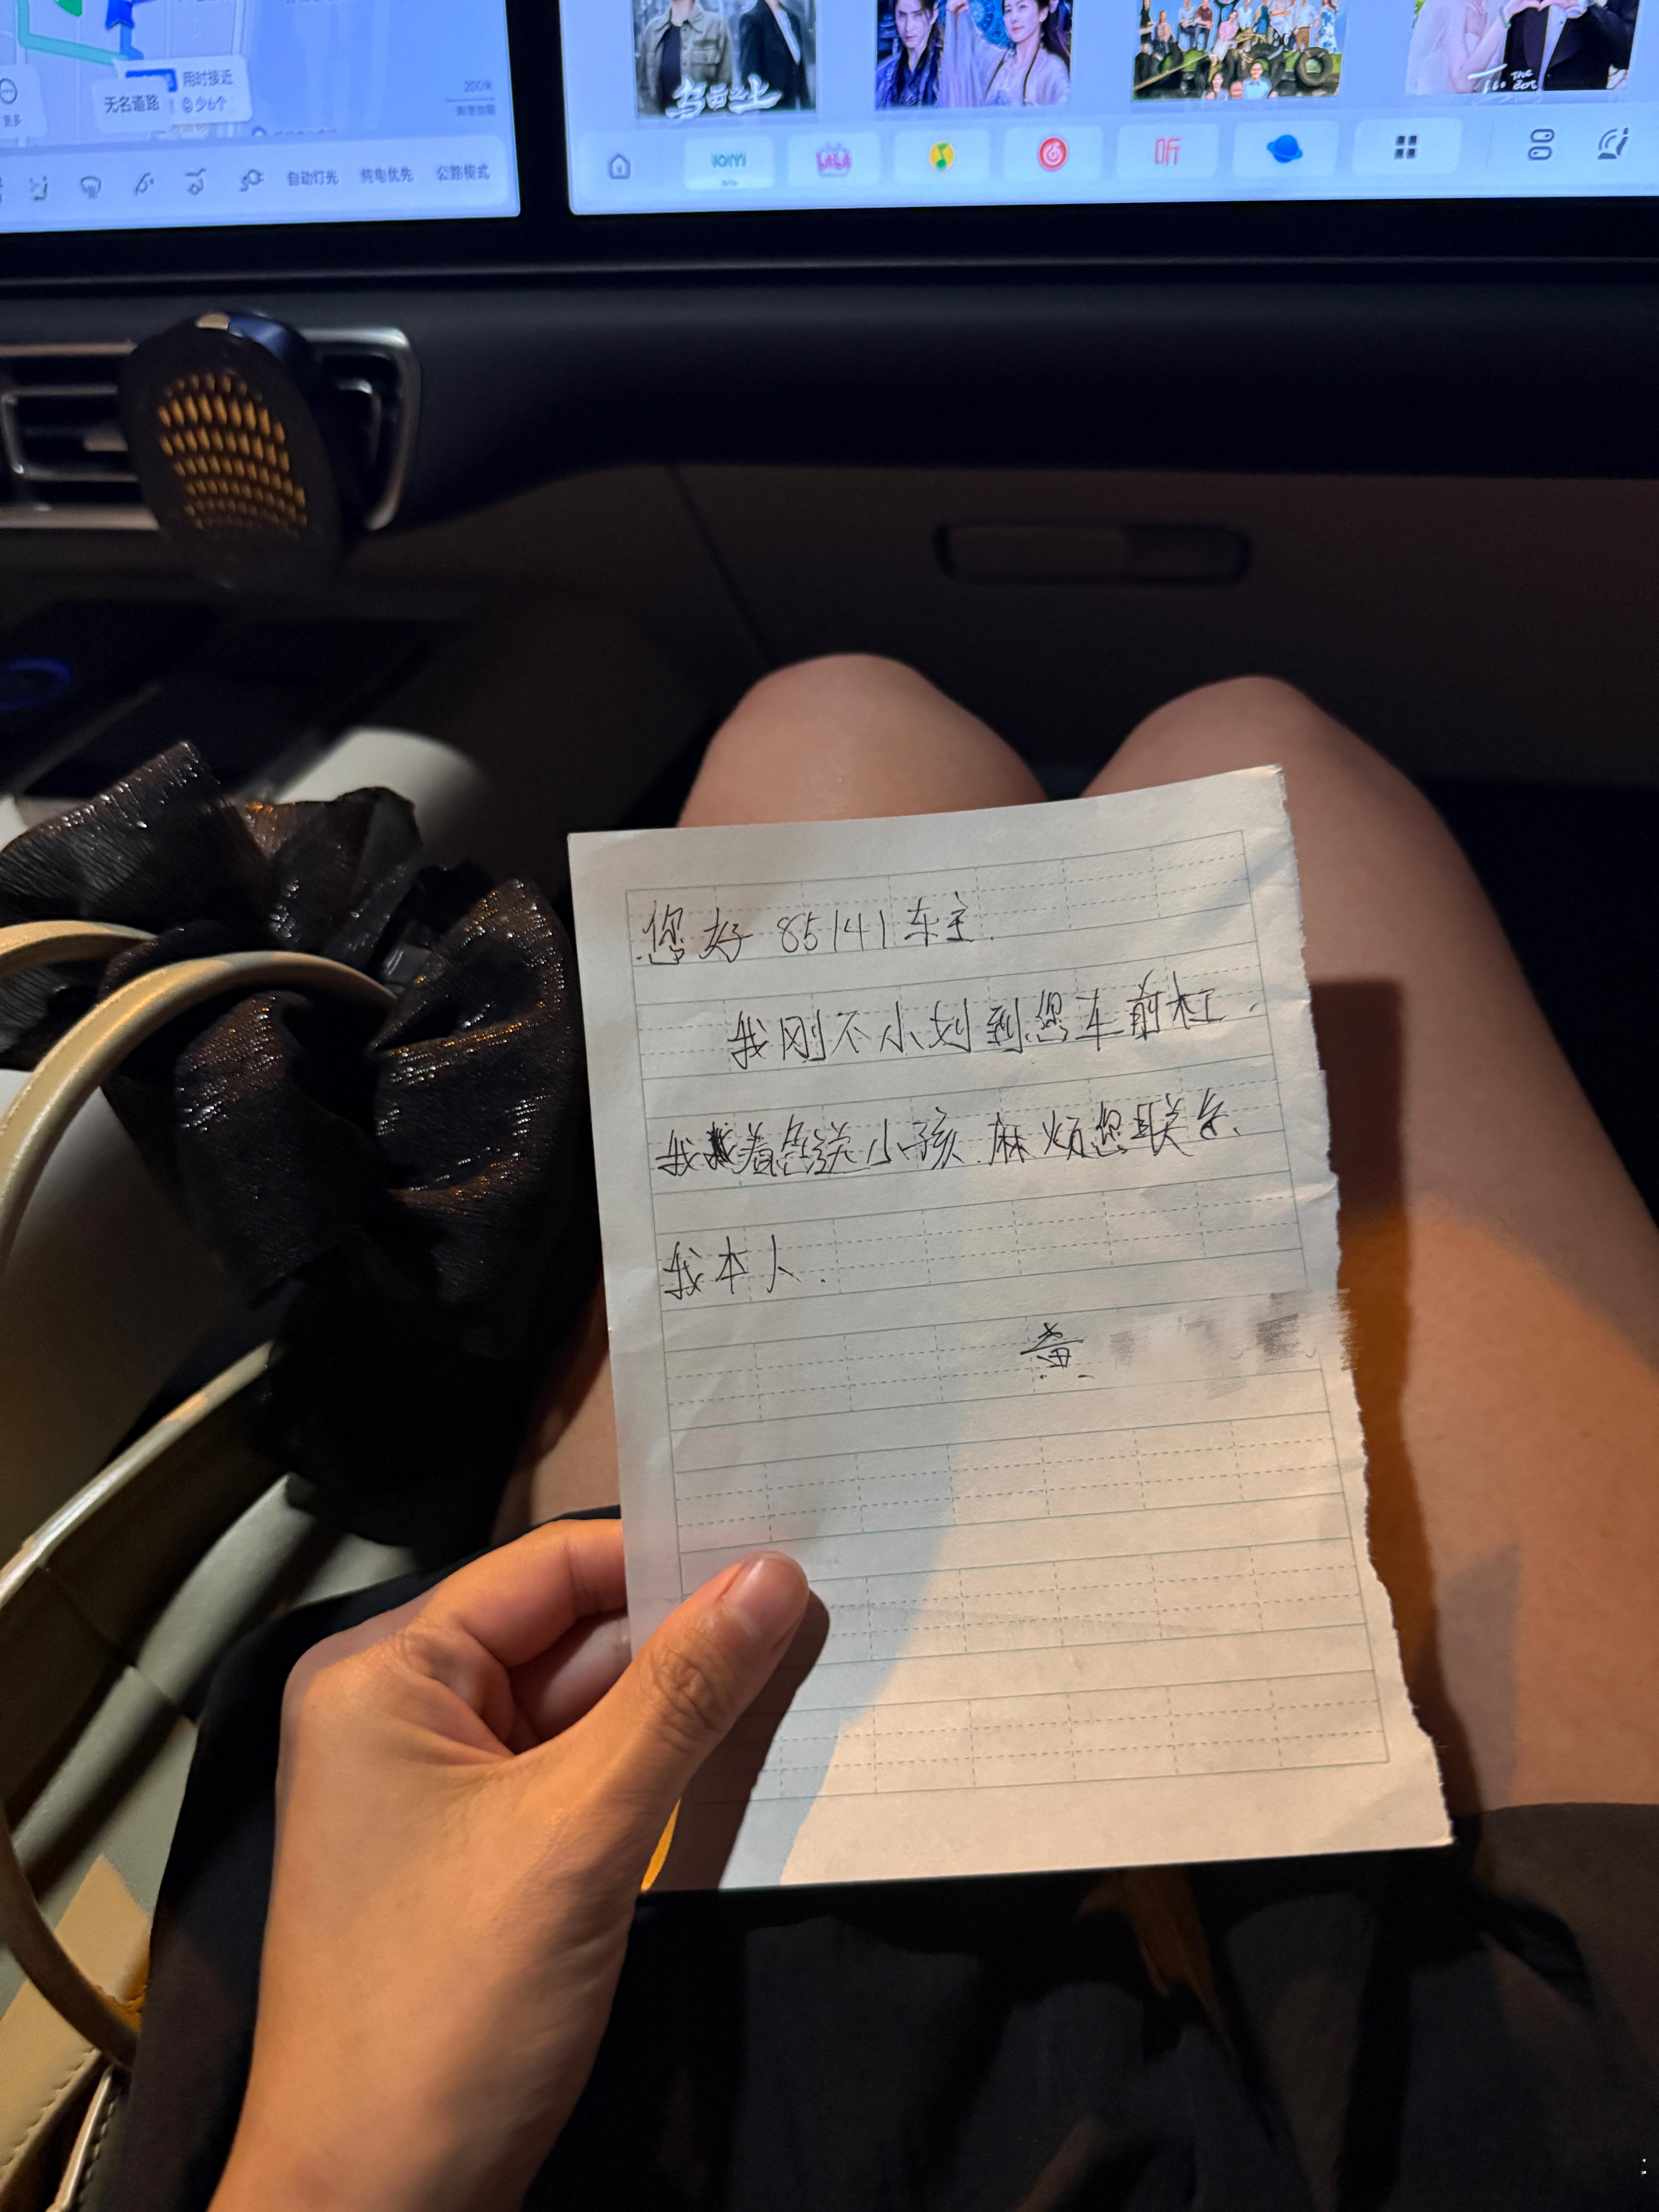 用时接近
无名道路
少6个
更多
200米
自动灯光
纯电优先
公路模式
iQIYI
听
您好 85141 车主.
我刚不小划到您车前杠.
我着急送小孩.麻烦您联系.
我本人.
黄